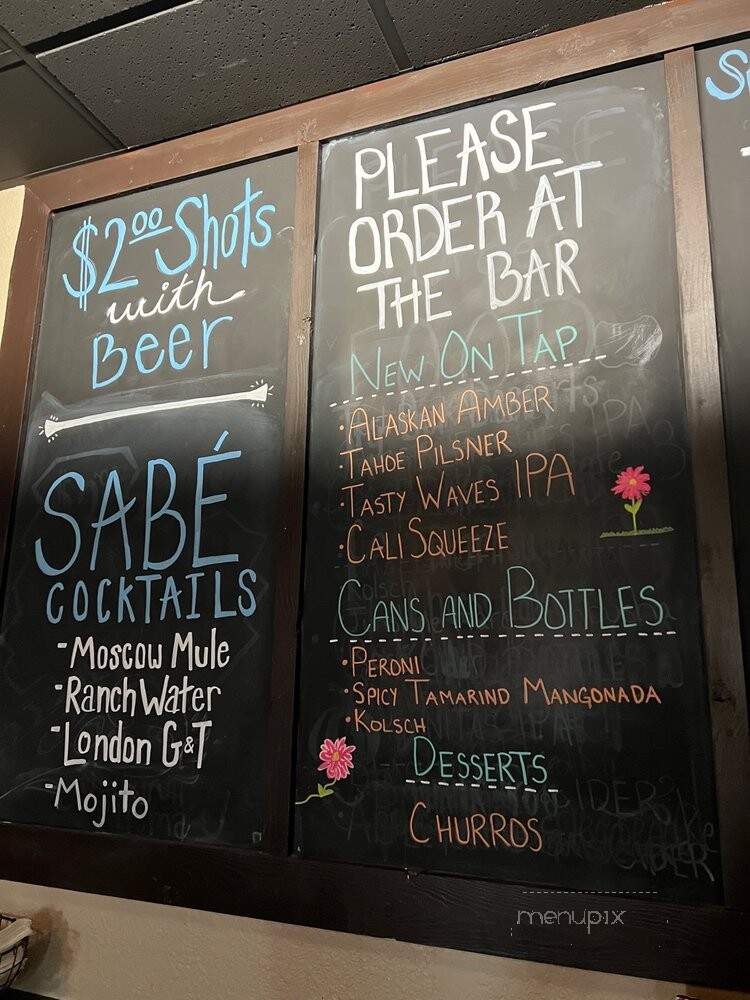 $2.00 Shots
with
Beer
SABÉ
COCKTAILS
-Moscow Mule
-Ranch Water
-London G&T
-Mojito
PLEASE
ORDER AT
THE BAR
NEW ON TAP
·ALASKAN AMBER
·TAHOE PILSNER
·TASTY WAVES IPA
·CALI SQUEEZE
CANS AND BOTTLES
·PERONI
·SPICY TAMARIND MANGONADA
·KOLSCH
DESSERTS
CHURROS
menupix